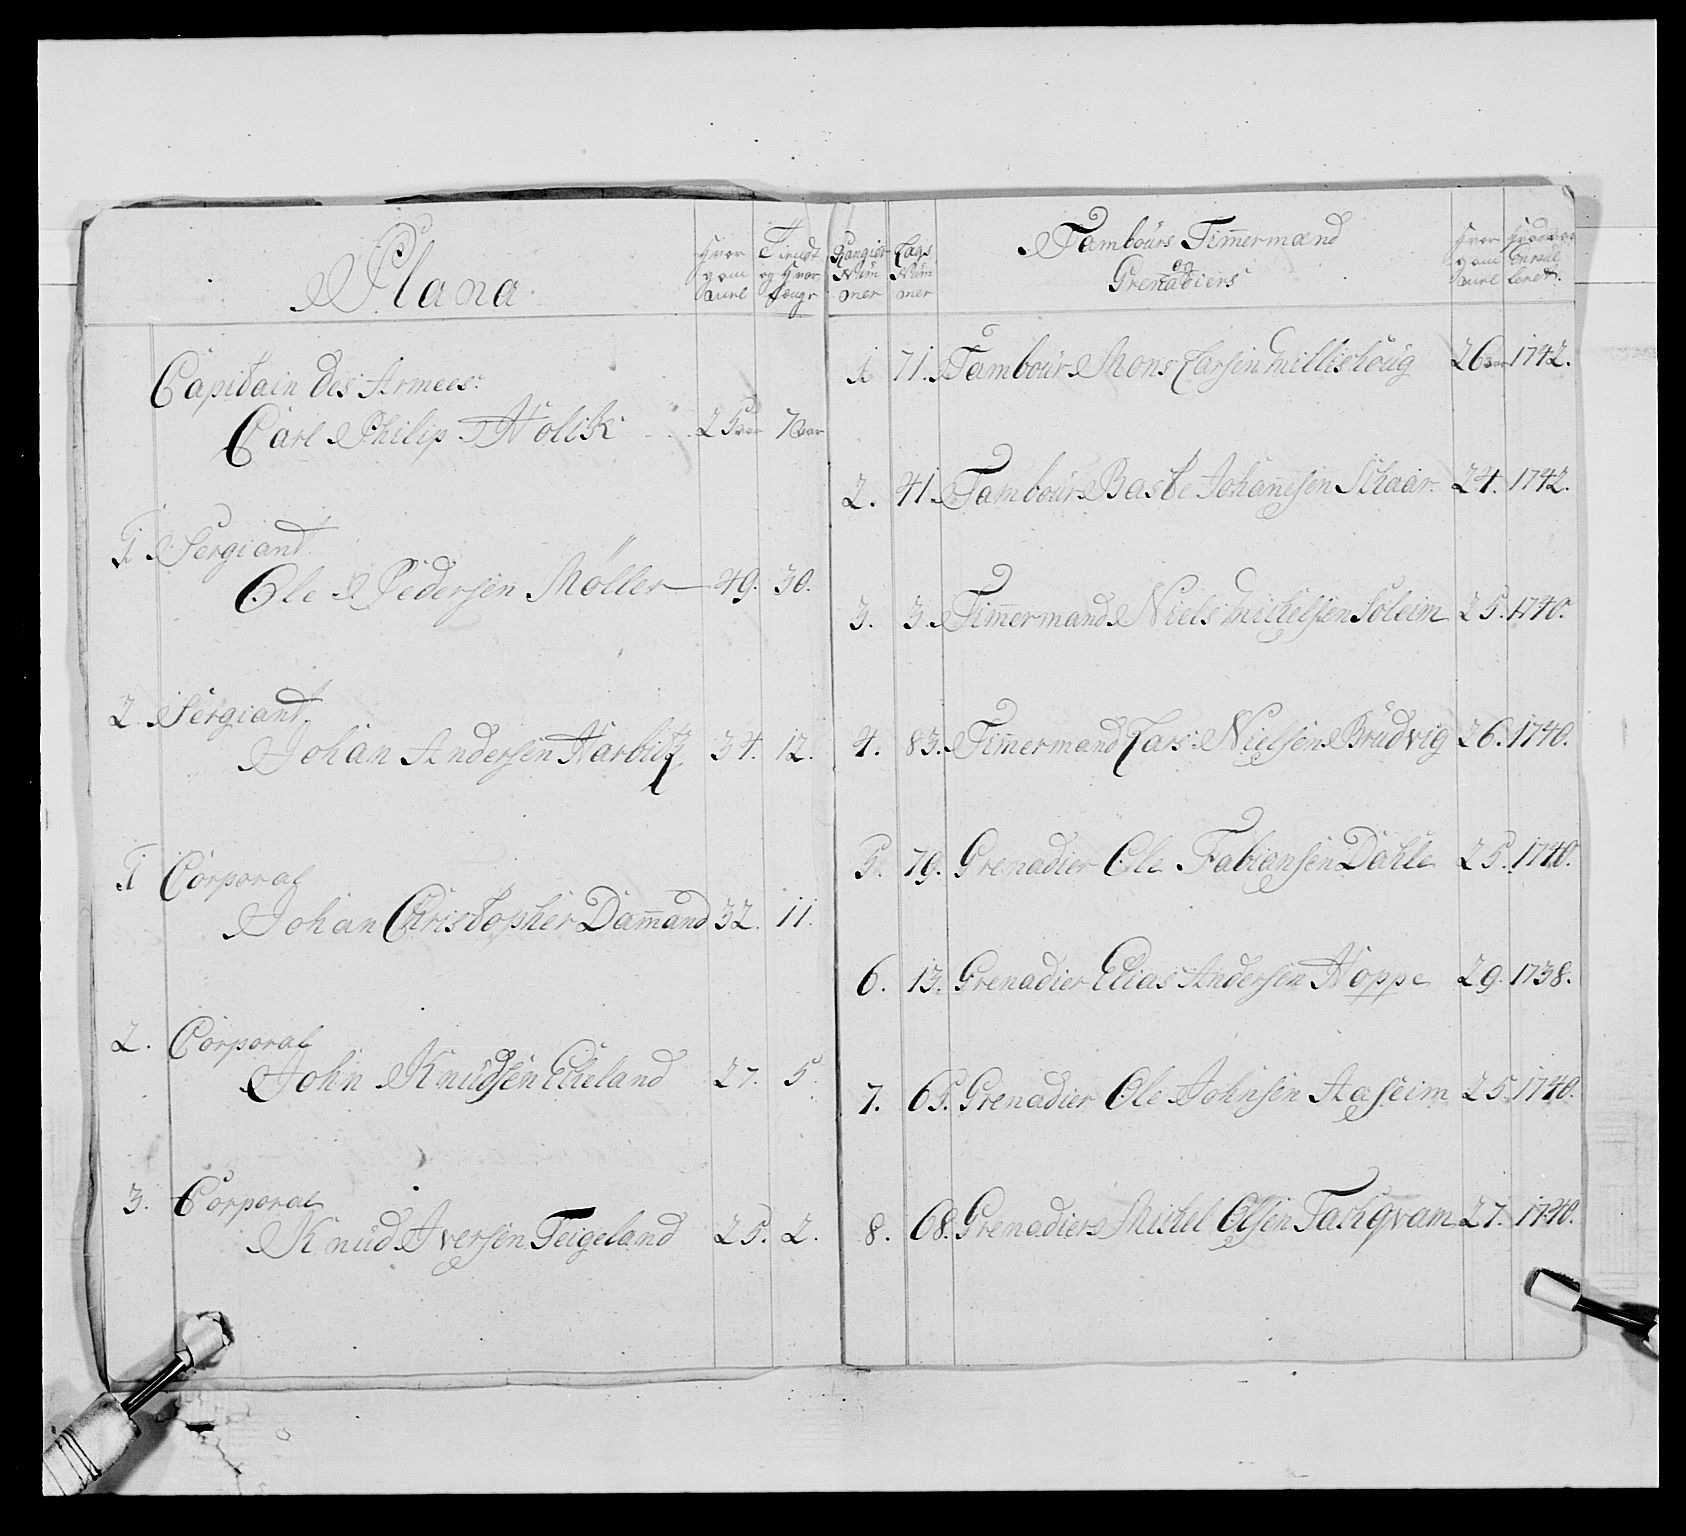 Plana
Hvor gam
Tiendt og Hvor længe
Capitain des Armees.
Carl Philip Nolik 25 aar 7 aar
1 Sergiant
Ole Pedersen Møller 49. 30.
2. Sergiant
Johan Andersen Harbitz 34. 12.
1 Corporal
Johan Christopher Dam̄and 32. 11.
2. Corporal
John Knudsen Echeland 27. 5.
3. Corporal
Knud Iversen Teigeland 25. 2.
Rangier Num mer
Lags Num mer
Tambours Tim̄ermænd
og
Grenadiers
Hvor gam
1. 71. Tambour Mons Larsen Millishoug 26 aar 1742.
2. 41. Tambour Baste Johan̄esen Schaar. 24. 1742.
3. 3. Tim̄ermand Niels Michelsen Soleim 25. 1740.
4. 83. Tim̄ermand Lars Nielsen Brudvig 26. 1740.
5. 79. Grenadier Ole Fabiansen Dahle 25. 1740.
6. 13. Grenadier Elias Andersen Hoppe 29. 1738.
7. 65. Grenadier Ole Johnsen Aaseim 25. 1740.
8. 68. Grenadier Michel Olsen Tachqvam 27. 1740.